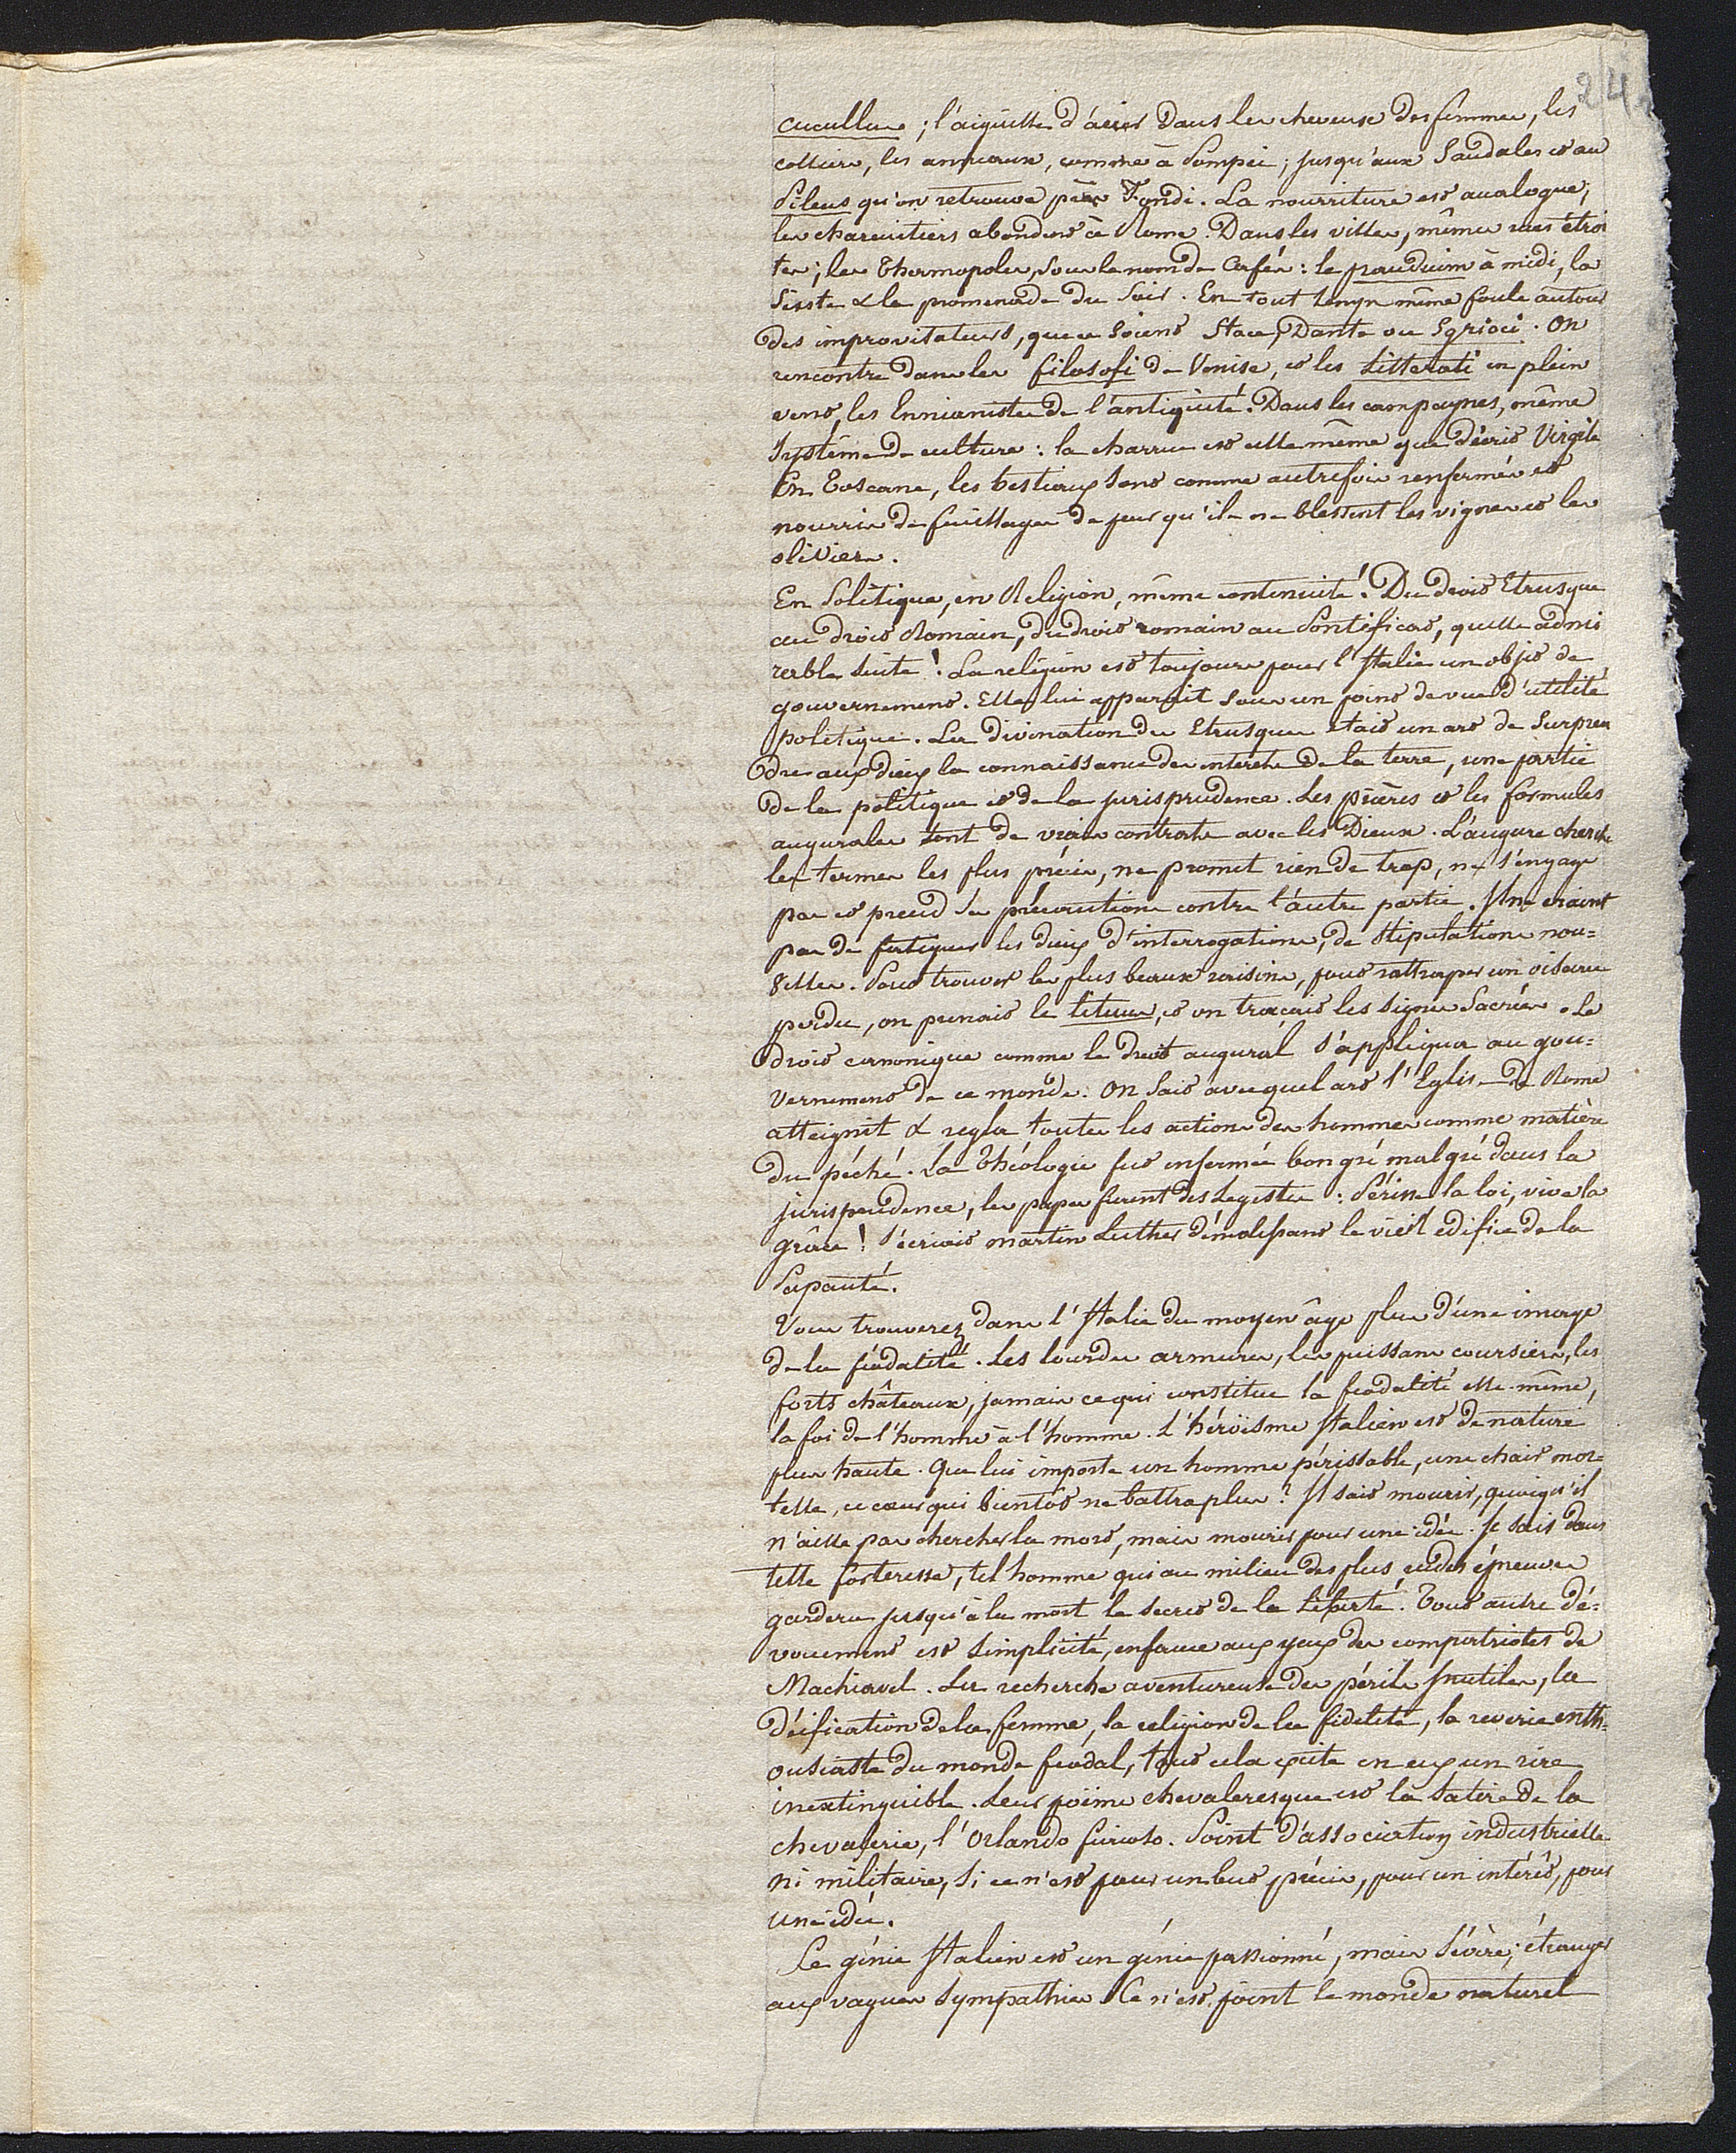 24
cucullus ; l'aiguille d'acier dans les cheveux des femmes, les
colliers, les anneaux, comme à Pompei ; jusqu'aux Sandales et au
Pileus qu'on retrouve près Fondi. La nourriture est analogue ;
les charcutiers abondent à Rome. Dans les villes, mêmes rues étroi
tes ; les Thermopoles, sous le nom de Cafés : le prandium à midi, la
Sieste & la promenade du Soir. En tout temps même foule autour
des improvisateurs, que ce soient Stace, Dante ou Sgricci. On
rencontre dans les filosofi de Venise, et les Litterati en plein
vent, les Ennianistes de l'antiquité. Dans les campagnes, même
Système de culture : la charrue est celle même que décrit Virgile
En Toscane, les bestiaux sont comme autrefois renfermés et
nourris de feuillages de peur qu'ils ne blessent les vignes et les
oliviers.
En Politique, en Religion, même continuité. Du droit Etrusque
au droit Romain, du droit romain au Pontificat, quelle admi
rable suite ! La religion est toujours pour l'Italie un objet de
gouvernement. Elle lui apparait sous un point de vue d'utilité
politique. La divination des Etrusques était un art de Surpren
dre aux dieux la connaissance des interêts de la terre, une partie
de la politique et de la jurisprudence. Les prières et les formules
augurales sont de vrais contrats avec les Dieux. L'augure cherche
les termes les plus précis, ne promet rien de trop, ne s'engage
pas et prend ses précautions contre l'autre partie. Il ne craint
pas de fatiguer les dieux d'interrogations, de Stipulations nou=
velles. Pour trouver les plus beaux raisins, pour rattraper un oiseau
perdu, on prenait le lituus, et on traçait les signes Sacrés. Le
droit canonique comme le droit augural s'appliqua au gou=
vernement de ce monde. On Sait avec quel art l'Eglise de Rome
atteignit & regla toutes les actions des hommes comme matière
du péché. La Théologie fut enfermée bon gré mal gré dans la
jurisprudence, les papes furent des Legistes : Périsse la loi, vive la
grâce ! s'écriait martin Luther démolissant le vieil edifice de la
Papauté.
Vous trouverez dans l'Italie du moyen âge plus d'une image
de la féodalité. Les lourdes armures, les puissans coursiers, les
forts châteaux, jamais ce qui constitue la féodalité elle-même,
la foi de l'homme à l'homme. L'héroïsme Italien est de nature
plus haute. Que lui importe un homme périssable, une chair mor=
telle, ce cœur qui bientôt ne battra plus ? Il sait mourir, quoiqu'il
n'aille pas chercher la mort, mais mourir pour une idée. Je sais dans
telle forteresse, tel homme qui au milieu des plus rudes épreuves
gardera jusqu'à la mort le secret de la Liberté. Tout autre dé=
vouement est simplicité, enfance aux yeux des compatriotes de
Machiavel. La recherche aventureuse des périls Inutiles, la
déification de la femme, la religion de la fidelité, la reverie enth=
ousiaste du monde feodal, tout cela excite en eux un rire
inextinguible. Leur poëme chevaleresque est la Satire de la
chevalerie, l'Orlando furioso. Point d'association industrielle
ni militaire, si ce n'est pour un but précis, pour un intérêt, pour
une idée.
Le génie Italien est un génie passionné, mais Sévère, étranger
aux vagues Sympathies. Ce n'est point le monde naturel